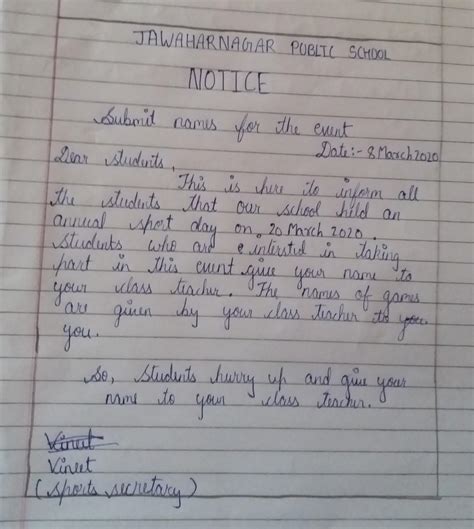 JAWAHARNAGAR PUBLIC SCHOOL
NOTICE
Submit names for the event
Date:- 8 March 2020
Dear students,
This is here to inform all
the students that our school held an
annual sport day on 20 March 2020.
Students who are intrested in taking
part in this event give your name to
your class teacher. The names of games
are given by your class teacher to you
you.
So, students hurry up and give your
name to your class teacher.
Vineet
Vineet
(sports secretary)